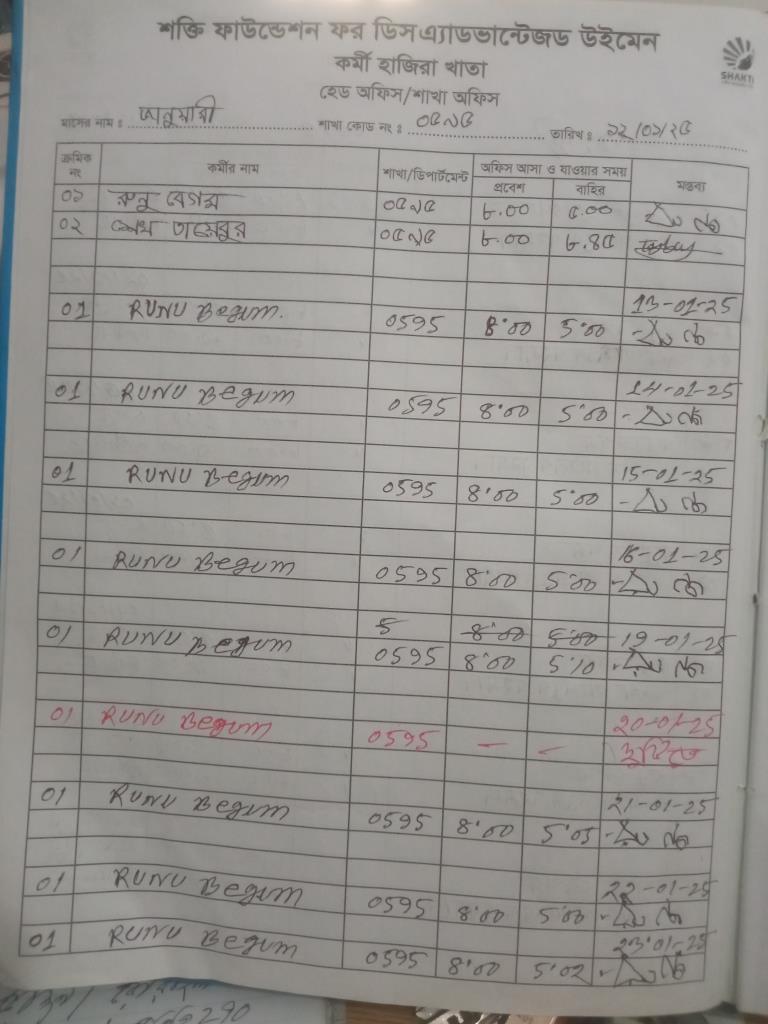 শক্তি ফাউন্ডেশন ফর ডিসএ্যাডভান্টেজড উইমেন
কর্মী হাজিরা খাতা
হেড অফিস/শাখা অফিস
SHAKTI
মাসের নাম : জানুয়ারী শাখা কোড নং : ০৫৯৫ তারিখ : ১২/০১/২৫
ক্রমিক নং কর্মীর নাম শাখা/ডিপার্টমেন্ট অফিস আসা ও যাওয়ার সময় মন্তব্য
প্রবেশ বাহির
০১ রুনু বেগম ০৫৯৫ ৮.০০ ৫.০০
০২ শেখ ০৫৯৫ ৮.০০ ৮.৪৫
13-01-25
01 RUNU Begum. 0595 8:00 5:00
14-01-25
01 RUNU Begum 0595 8:00 5:00
15-01-25
01 RUNU Begum 0595 8:00 5:00
16-01-25
01 RUNU Begum 0595 8:00 5:00
5 8:00 5:00 19-01-25
01 RUNU Begum 0595 8:00 5:10
20-01-25
01 RUNU Begum 0595 — — ছুটিতে
21-01-25
01 RUNU Begum 0595 8:00 5:05
22-01-25
01 RUNU Begum 0595 8:00 5:00
23-01-25
01 RUNU Begum 0595 8:00 5:02
290